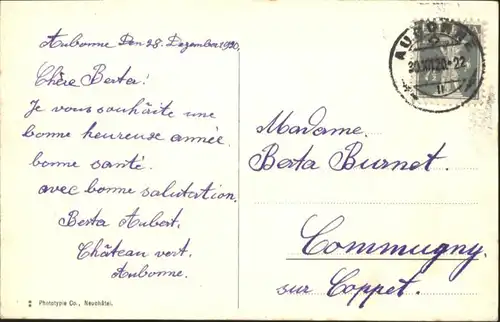 Aubonne Den 28. Dezember 1920.
Chère Berta!
Je vous souhaite une
bonne heureuse année.
bonne santé.
avec bonne salutation.
Berta Aubert.
Château vert.
Aubonne.
Phototypie Co., Neuchâtel.
AUBONNE
Madame.
Berta Burnet.
Commugny.
sur Coppet.